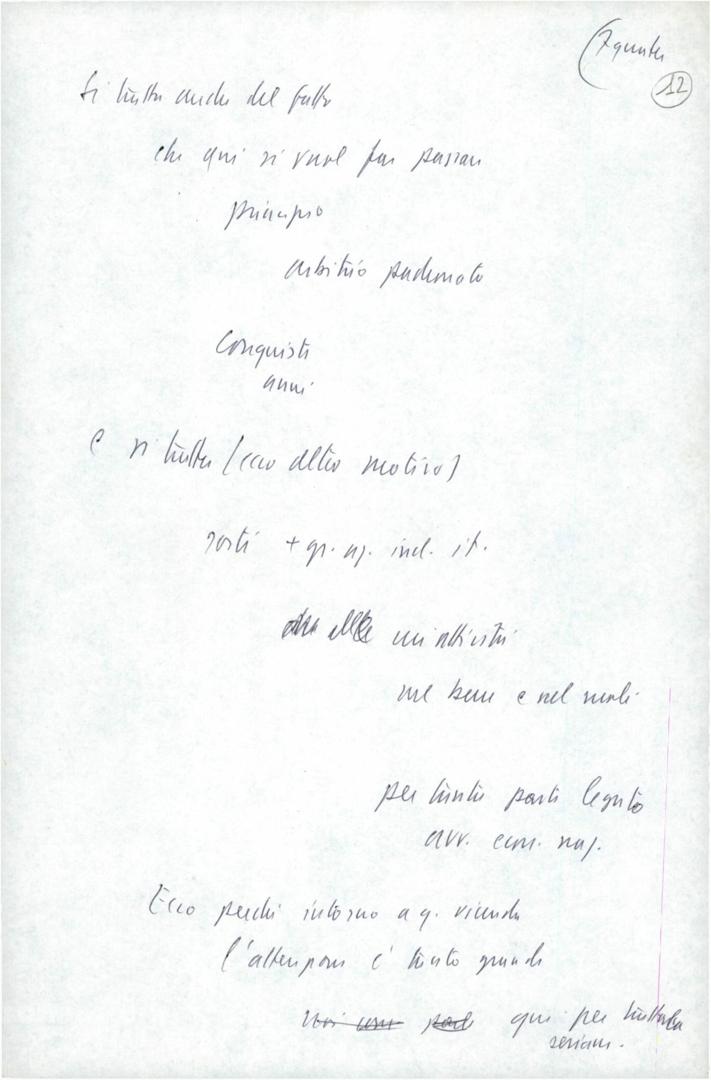 (Appunti
12
Si tratta anche del fatto
che qui si vuol far passare
principio
arbitrio padronato
Conquiste
anni
e si tratta (ecco altro motivo)
sorti + gr. az. ind. it.
nel bene e nel male
per tanta parte legato
avv. econ. naz.
Ecco perché intorno a q. vicenda
l'attenzione è tanto grande
qui per trattarla